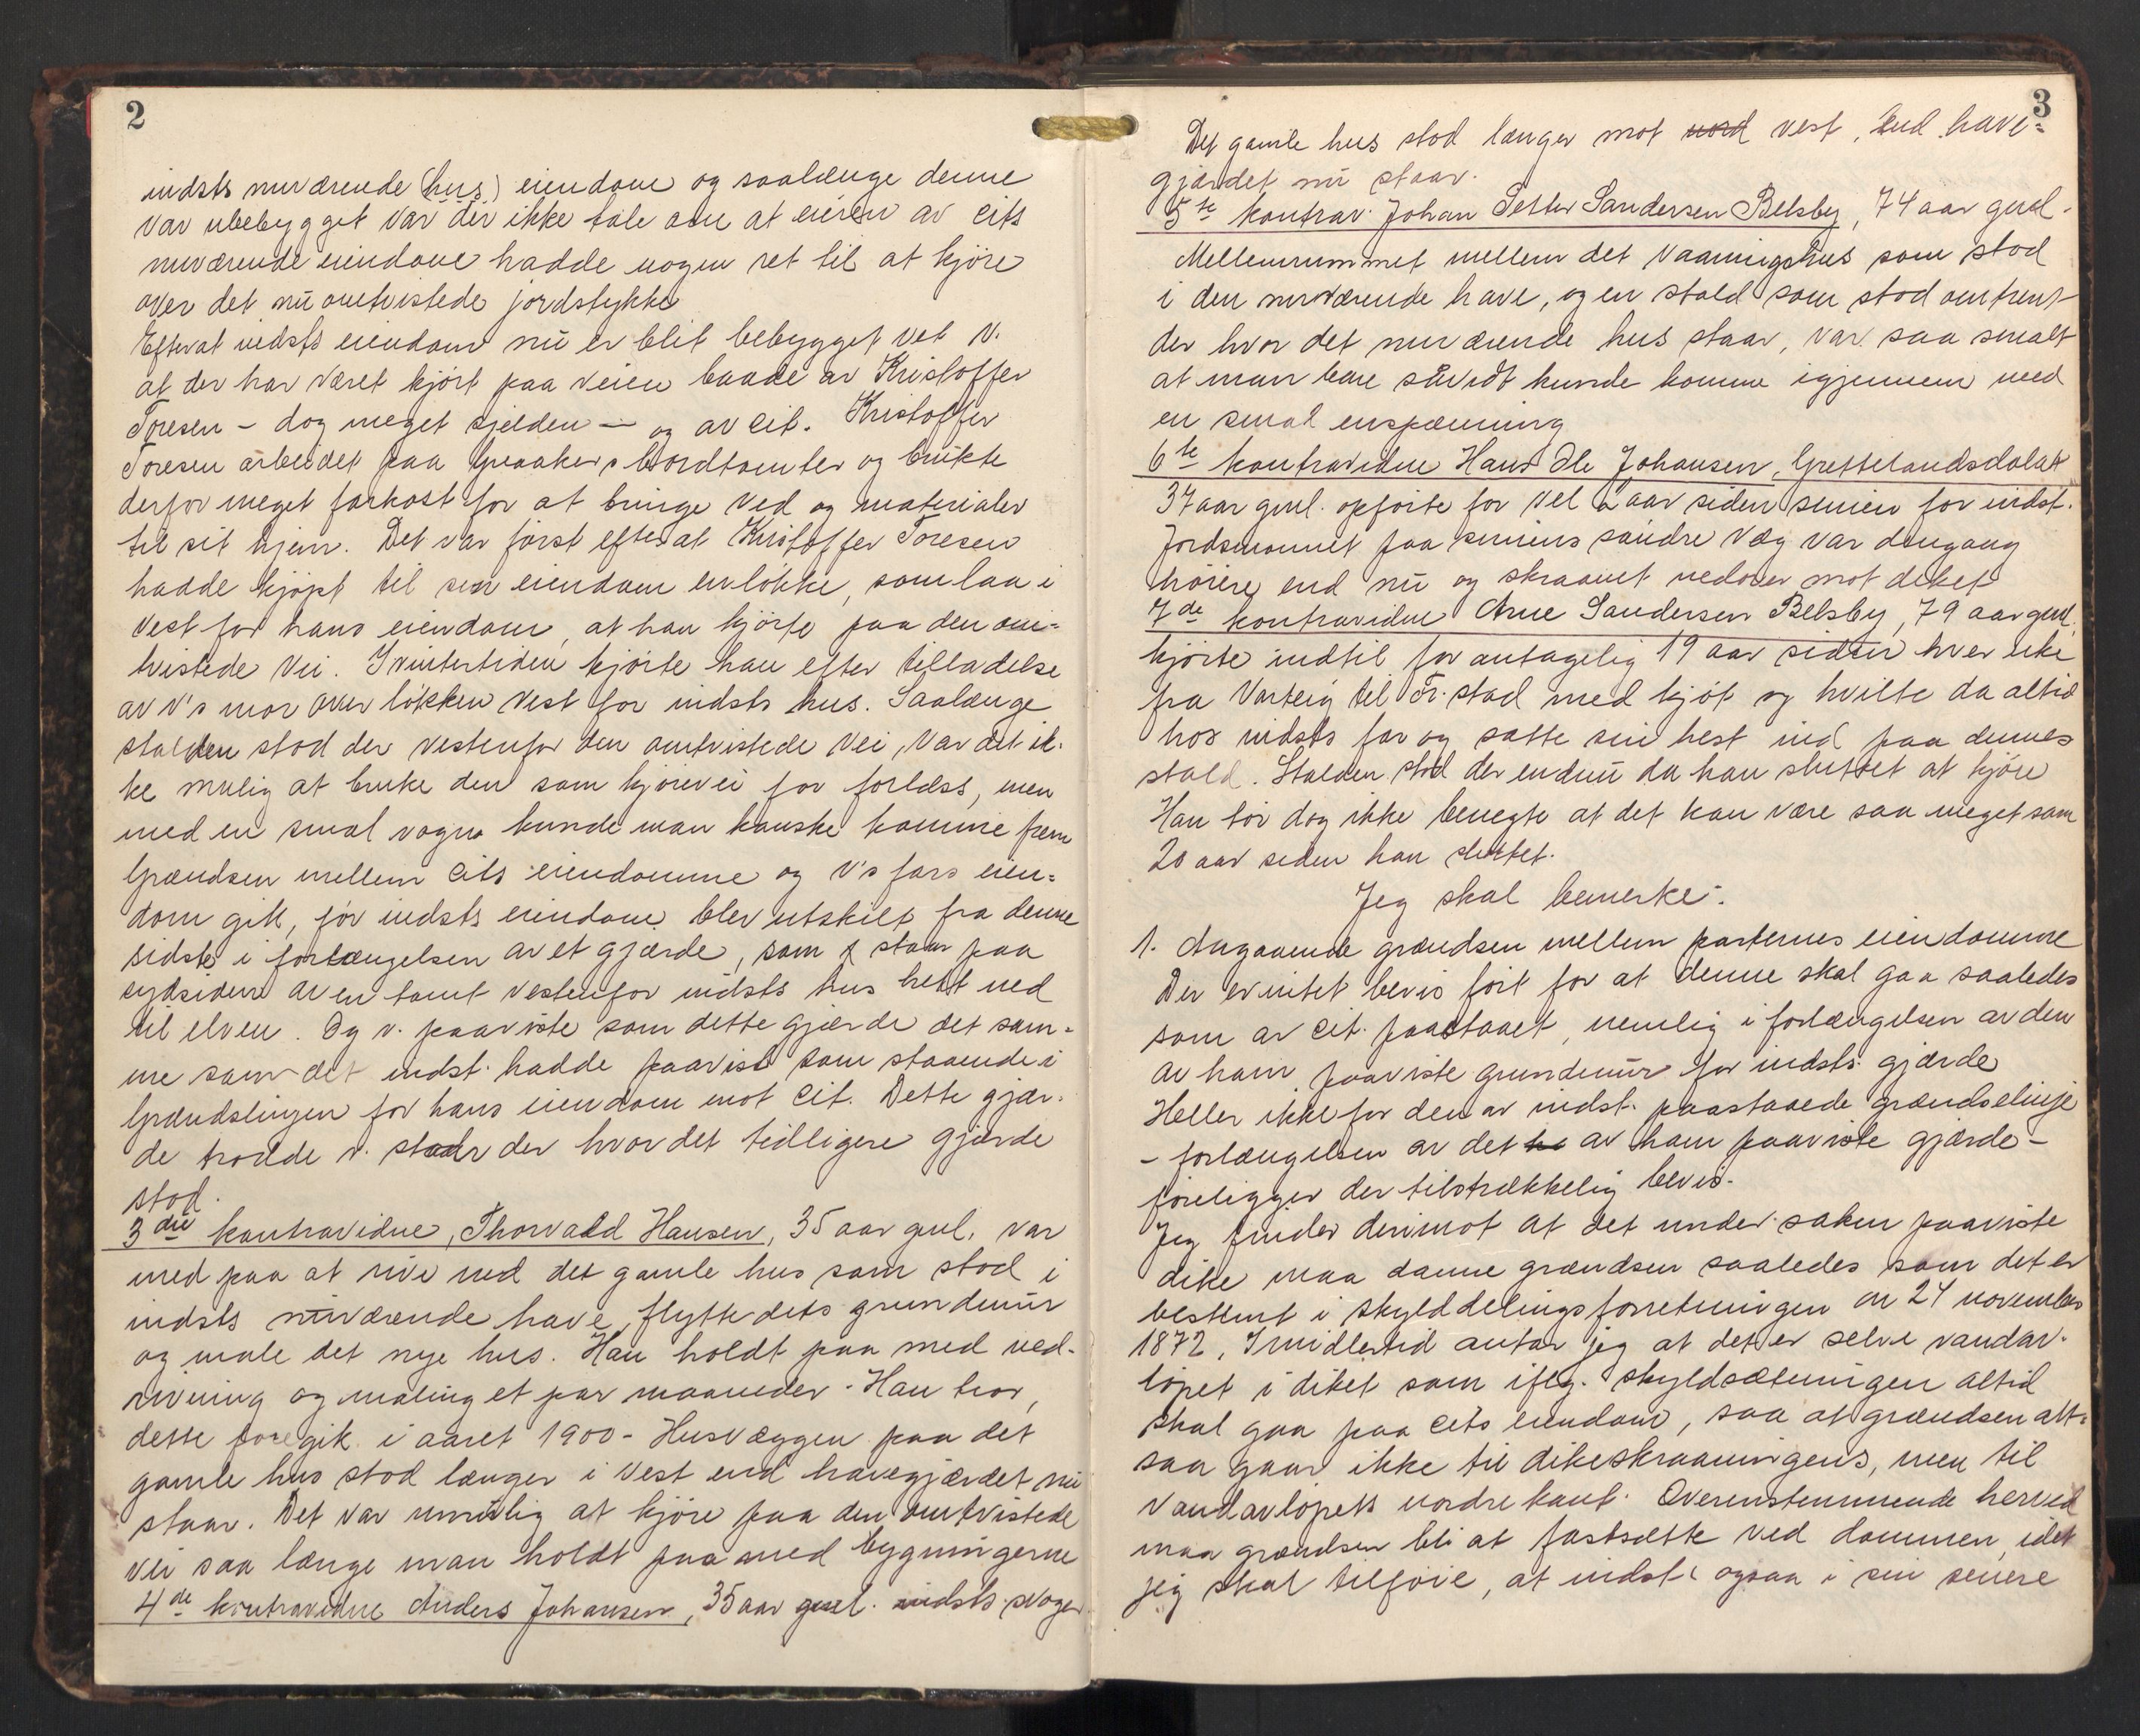 2
indsts nuværende (hus) eiendom og saalænge denne
var ubebygget var der ikke tale om at eieren av cits
nuværende eiendom hadde nogen ret til at kjøre
over det nu omtvistede jordstykke
Efterat indsts eiendom nu er blit bebygget vet v.
at der har været kjørt paa veien baade av Kristoffer
Toresen - dog meget sjelden - og av cit. Kristoffer
Toresen arbeidet paa Greaakers bordtomter og brukte
derfor meget farkost for at bringe ved og materialer
til sit hjem. Det var først efterat Kristoffer Toresen
hadde kjøpt til sin eiendom en løkke, som laa i
vest for hans eiendom, at han kjørte paa den om-
tvistede vei. I vintertiden kjørte han efter tilladelse
av v's mor over løkken vest for indsts hus. Saalænge
stalden stod der vestenfor den omtvistede vei, var det ik-
ke mulig at bruke den som kjørevei for forlæss, men
med en smal vogn kunde man kanske komme frem
Grændsen mellem cits eiendomme og v's fars eien-
dom gik, før indsts eiendom blev utskilt fra denne
sidste i forlængelsen av et gjærde, som staar paa
sydsiden av en tomt vestenfor indsts hus helt ned
til elven. Og v. paaviste som dette gjærde det sam-
me som det indst. hadde paavist som staaende i
Grændselinjen for hans eiendom mot cit. Dette gjær-
de trodde v. staar der hvor det tidligere gjærde
stod.
3die kontravidne, Thorvald Hansen, 35 aar gml. var
med paa at rive ned det gamle hus som stod i
indsts nuværende have, flytte dets grundmur
og male det nye hus. Han holdt paa med ned-
rivning og maling et par maaneder. Han tror,
dette foregik i aaret 1900 - Husvæggen paa det
gamle hus stod længer i vest end havegjærdet nu
staar. Det var umulig at kjøre paa den omtvistede
vei saa længe man holdt paa med bygningerne
4de kontravidne Anders Johansen, 35 aar gml. indsts svoger
3
Det gamle hus stod længer mot nord vest, end have-
gjærdet nu staar.
5te kontrav. Johan Petter Sandersen Belsby, 74 aar gml.
Mellemrummet mellem det vaaningshus som stod
i den nuværende have, og en stald som stod omtrent
der hvor det nuværende hus staar, var saa smalt
at man bare såvidt kunde komme igjennem med
en smal enspænning
6te kontravidne Hans Ole Johansen, Grettelandsdalen
37 aar gml. opførte for vel 2 aar siden smien for indst.
Jordsmonnet paa smiens søndre væg var dengang
høiere end nu og skraanet nedover mot diket
7de kontravidne Arne Sandersen Belsby, 79 aar gml.
kjørte indtil for antagelig 19 aar siden hver uke
fra Varteig til Fr.stad med kjøt og hvilte da altid
hos indsts far og satte sin hest ind paa dennes
stald. Stalden stod der endnu da han sluttet at kjøre
Han tør dog ikke benegte at det kan være saa meget som
20 aar siden han sluttet.
Jeg skal bemerke:
1. Angaaende grændsen mellem parternes eiendomme
Der er intet bevis ført for at denne skal gaa saaledes
som av cit. paastaaet, nemlig i forlængelsen av den
av ham paaviste grundmur for indsts gjærde
Heller ikke for den av indst. paastaaede grændselinje
- forlængelsen av det av ham paaviste gjærde -
foreligger der tilstrækkelig bevis.
Jeg finder derimot at det under saken paaviste
dike maa danne grændsen saaledes som det er
bestemt i skylddelingsforretningen av 24 november
1872, Imidlertid antar jeg at det er selve vandav-
løpet i diket som iflg. skyldsætningen altid
skal gaa paa cits eiendom, saa at grændsen alt-
saa gaar ikke til dikeskraaningens, men til
vandavløpets nordre kant. Overensstemmende herved
maa grændsen bli at fastsætte ved dommen, idet
jeg skal tilføie, at indst. ogsaa i sin senere